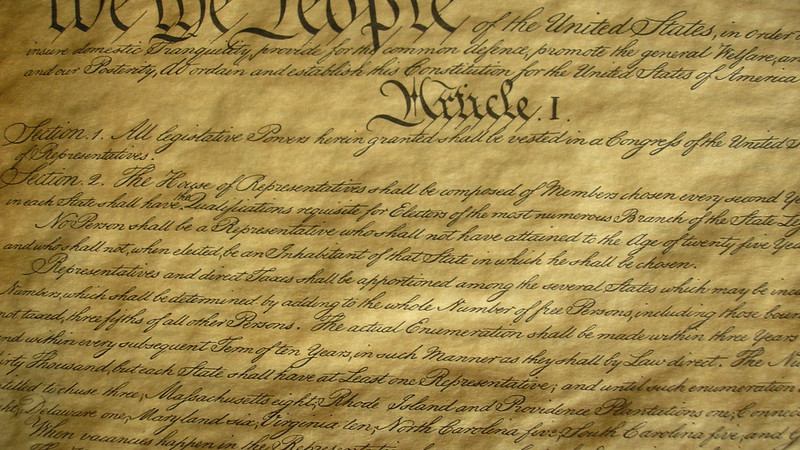 We the People of the United States, in Order
insure domestic Tranquility, provide for the common defence, promote the general Welfare, and
and our Posterity, do ordain and establish this Constitution for the United States of America
Article. I.
Section. 1. All legislative Powers herein granted shall be vested in a Congress of the United
of Representatives.
Section. 2. The House of Representatives shall be composed of Members chosen every second
in each State shall have the Qualifications requisite for Electors of the most numerous Branch of the State
No Person shall be a Representative who shall not have attained to the Age of twenty five
and who shall not, when elected, be an Inhabitant of that State in which he shall be chosen.
Representatives and direct Taxes shall be apportioned among the several States which may be
Numbers, which shall be determined by adding to the whole Number of free Persons, including those
not taxed, three fifths of all other Persons. The actual Enumeration shall be made within three Years
and within every subsequent Term of ten Years, in such Manner as they shall by Law direct. The
thirty Thousand, but each State shall have at Least one Representative; and until such enumeration
chuse three, Massachusetts eight, Rhode Island and Providence Plantations one,
Delaware one, Maryland six, Virginia ten, North Carolina five, South Carolina five, and
When vacancies happen in the